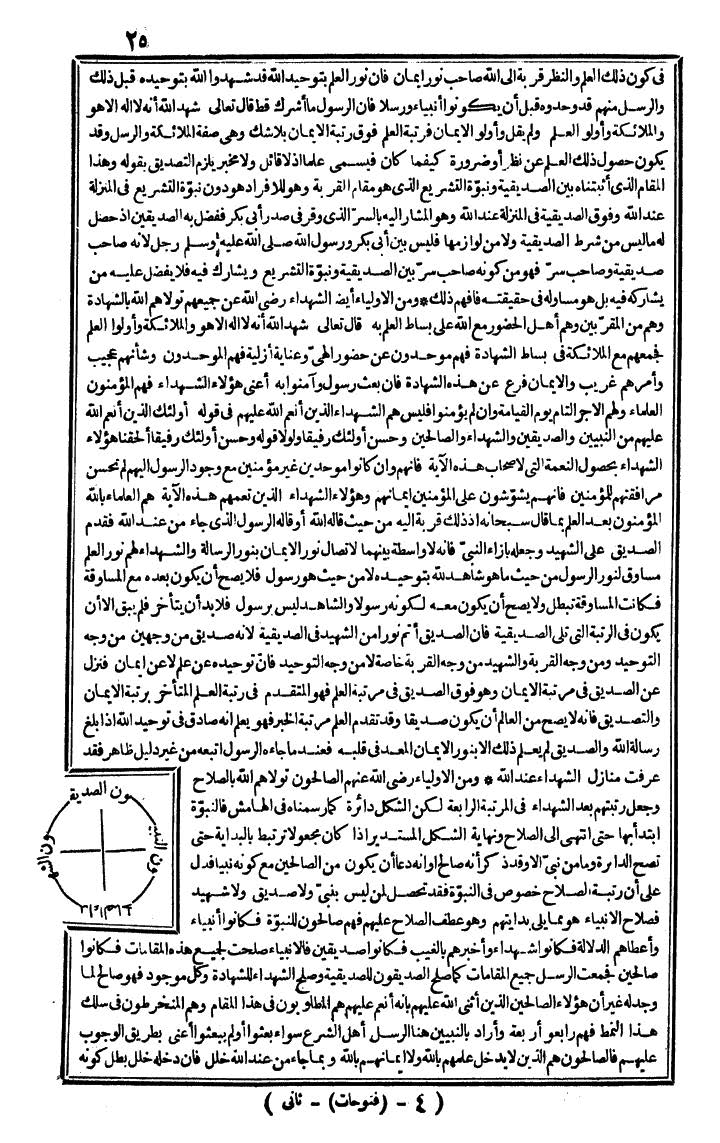 ٢٥
فى كون ذلك العلم والنظر قربة الى الله صاحب نور ايمان فان نور العلم بتوحيد الله قد شهدوا الله بتوحيده قبل ذلك
والرسل منهم قد وحدوه قبل أن يكونوا أنبياء ورسلا فان الرسول ما أشرك قط قال تعالى شهد الله أنه لا اله الا هو
والملائكة وأولو العلم ولم يقل وأولو الايمان فرتبة العلم فوق رتبة الايمان بلا شك وهى صفة الملائكة والرسل وقد
يكون حصول ذلك العلم عن نظر أو ضرورة كيفما كان فيسمى علما اذ لا قائل ولا مخبر يلزم التصديق بقوله وهذا
المقام الذى أثبتناه بين الصديقية ونبوّة التشريع الذى هو مقام القربة وهو للافراد هو دون نبوّة التشريع فى المنزلة
عند الله وفوق الصديقية فى المنزلة عند الله وهو المشار اليه بالسرّ الذى وقر فى صدر أبى بكر ففضل به الصديقين اذ حصل
له ما ليس من شرط الصديقية ولا من لوازمها فليس بين أبى بكر ورسول الله صلى الله عليه وسلم رجل لانه صاحب
صديقية وصاحب سرّ فهو من كونه صاحب سرّ بين الصديقية ونبوّة التشريع ويشارك فيه فلا يفضل عليه من
يشاركه فيه بل هو مساو له فى حقيقته فافهم ذلك * ومن الاولياء أيضا الشهداء رضى الله عن جميعهم تولاهم الله بالشهادة
وهم من المقرّبين وهم أهل الحضور مع الله على بساط العلم به قال تعالى شهد الله أنه لا اله الا هو والملائكة وأولوا العلم
فجمعهم مع الملائكة فى بساط الشهادة فهم موحدون عن حضور الهىّ وعناية أزلية فهم الموحدون وشأنهم عجيب
وأمرهم غريب والايمان فرع عن هذه الشهادة فان بعث رسول وآمنوا به أعنى هؤلاء الشهداء فهم المؤمنون
العلماء ولهم الاجر التام يوم القيامة وان لم يؤمنوا فليس هم الشهداء الذين أنعم الله عليهم فى قوله أولئك الذين أنعم الله
عليهم من النبيين والصديقين والشهداء والصالحين وحسن أولئك رفيقا ولولا قوله وحسن أولئك رفيقا ألحقنا هؤلاء
الشهداء بحصول النعمة التى لاصحاب هذه الآية فانهم وان كانوا موحدين غير مؤمنين مع وجود الرسول اليهم لم تحسن
مرافقتهم للمؤمنين فانهم يشوّشون على المؤمنين ايمانهم وهؤلاء الشهداء الذين تعمهم هذه الآية هم العلماء بالله
المؤمنون بعد العلم بما قال سبحانه اذ ذلك قربة اليه من حيث قاله الله أو قاله الرسول الذى جاء من عند الله فقدم
الصديق على الشهيد وجعله بازاء النبىّ فانه لا واسطة بينهما لاتصال نور الايمان بنور الرسالة والشهداء لهم نور العلم
مساوق لنور الرسول من حيث ما هو شاهد لله بتوحيده لا من حيث هو رسول فلا يصح أن يكون بعده مع المساوقة
فكانت المساوقة تبطل ولا يصح أن يكون معه لكونه رسولا والشاهد ليس برسول فلا بد أن يتأخر فلم يبق الا أن
يكون فى الرتبة التى تلى الصديقية فان الصديق أتم نورا من الشهيد فى الصديقية لانه صديق من وجهين من وجه
التوحيد ومن وجه القربة والشهيد من وجه القربة خاصة لا من وجه التوحيد فانّ توحيده عن علم لا عن ايمان فنزل
عن الصديق فى مرتبة الايمان وهو فوق الصديق فى مرتبة العلم فهو المتقدم فى رتبة العلم المتأخر برتبة الايمان
والتصديق فانه لا يصح من العالم أن يكون صديقا وقد تقدم العلم مرتبة الخبر فهو يعلم انه صادق فى توحيد الله اذا بلغ
رسالة الله والصديق لم يعلم ذلك الا بنور الايمان المعد فى قلبه فعند ما جاءه الرسول اتبعه من غير دليل ظاهر فقد
عرفت منازل الشهداء عند الله * ومن الاولياء رضى الله عنهم الصالحون تولاهم الله بالصلاح
وجعل رتبتهم بعد الشهداء فى المرتبة الرابعة لكن الشكل دائرة كما رسمناه فى الهامش فالنبوّة
ابتدأ بها حتى انتهى الى الصلاح ونهاية الشكل المستدير اذا كان مجعولا ترتبط بالبداية حتى
تصح الدائرة وما من نبىّ الا وقد ذكر أنه صالح أو انه دعا أن يكون من الصالحين مع كونه نبيا فدل
على أن رتبة الصلاح خصوص فى النبوّة فقد تحصل لمن ليس بنبىّ ولا صديق ولا شهيد
فصلاح الانبياء هو مما يلى بدايتهم وهو عطف الصلاح عليهم فهم صالحون للنبوّة فكانوا أنبياء
وأعطاهم الدلالة فكانوا شهداء وأخبرهم بالغيب فكانوا صديقين فالانبياء صلحت لجميع هذه المقامات فكانوا
صالحين فجمعت الرسل جميع المقامات كما صلح الصديقون للصديقية وصلح الشهداء للشهادة وكل موجود فهو صالح لما
وجد له غير أن هؤلاء الصالحين الذين أثنى الله عليهم بانه أنعم عليهم هم المطلوبون فى هذا المقام وهم المنخرطون فى سلك
هذا النمط فهم رابعو أربعة وأراد بالنبيين هنا الرسل أهل الشرع سواء بعثوا أو لم يبعثوا أعنى بطريق الوجوب
عليهم فالصالحون هم الذين لا يدخل علمهم بالله ولا ايمانهم بالله وبما جاء من عند الله خلل فان دخله خلل بطل كونه
( ٤ - (فتوحات) - ثانى )